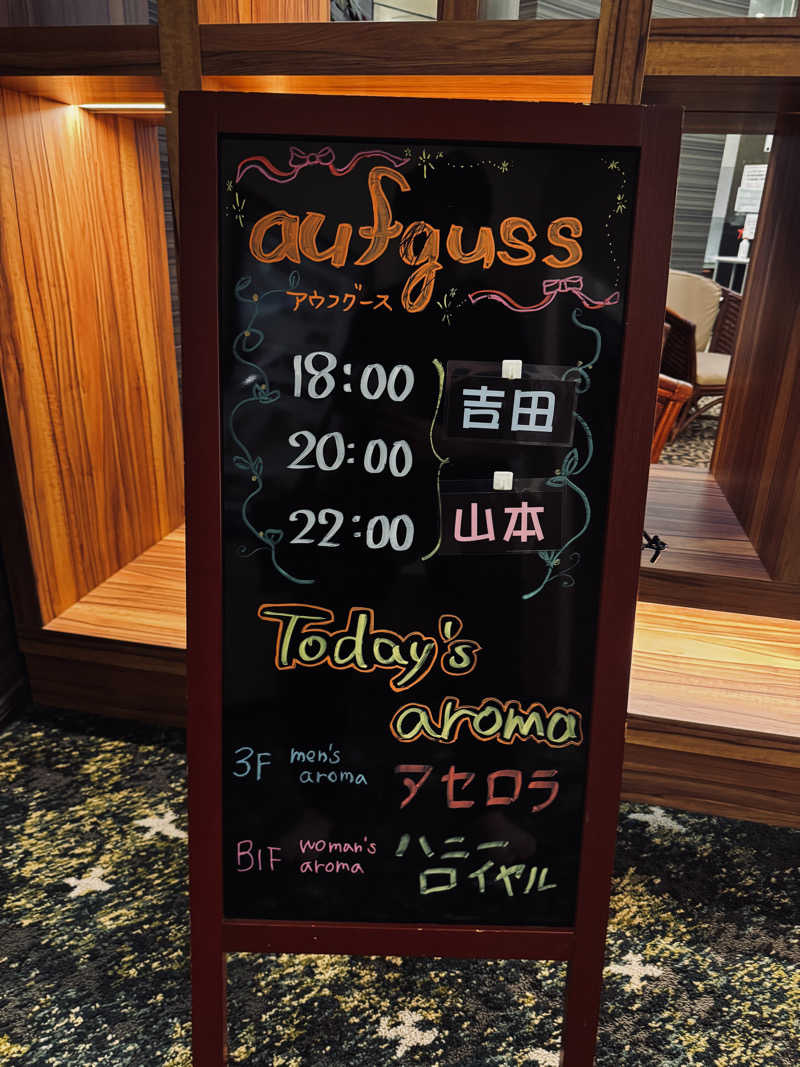 aufguss
アウフグース
18:00
吉田
20:00
22:00
山本
Today's
aroma
3F men's aroma
アセロラ
B1F woman's aroma
ハニー
ロイヤル